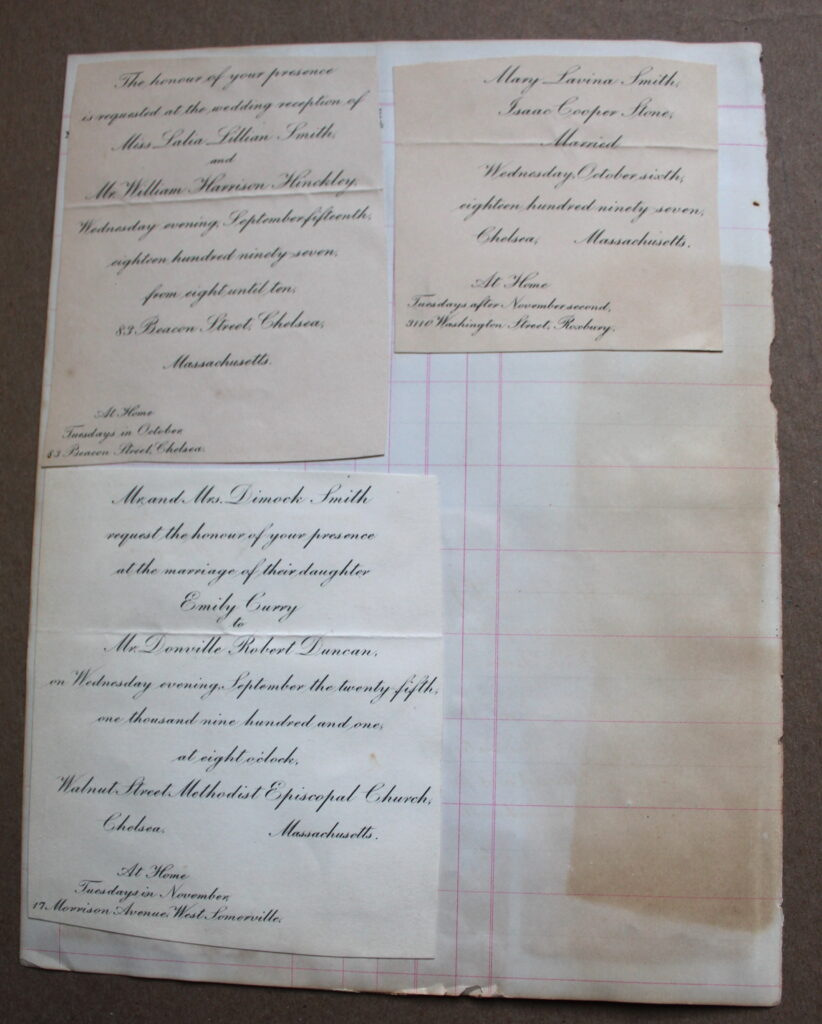 The honour of your presence
is requested at the wedding reception of
Miss Lalia Lillian Smith,
and
Mr. William Harrison Hinckley,
Wednesday evening, September fifteenth,
eighteen hundred ninety-seven,
from eight until ten,
83 Beacon Street, Chelsea,
Massachusetts.
At Home
Tuesdays in October,
83 Beacon Street, Chelsea.
Mary Lavina Smith,
Isaac Cooper Stone,
Married
Wednesday, October sixth,
eighteen hundred ninety-seven,
Chelsea, Massachusetts.
At Home
Tuesdays after November second,
3110 Washington Street, Roxbury.
Mr. and Mrs. Dimock Smith
request the honour of your presence
at the marriage of their daughter
Emily Curry
to
Mr. Donville Robert Duncan,
on Wednesday evening, September the twenty-fifth,
one thousand nine hundred and one,
at eight o'clock,
Walnut Street Methodist Episcopal Church,
Chelsea, Massachusetts.
At Home
Tuesdays in November,
17 Morrison Avenue, West Somerville.